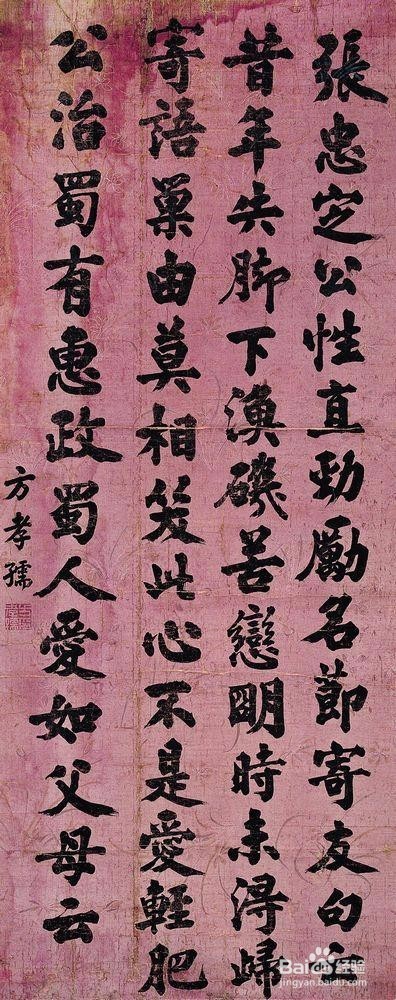 張忠定公性直勁勵名節寄友句云
昔年失脚下漁磯苦戀明時未得歸
寄語巢由莫相笑此心不是愛輕肥
公治蜀有惠政蜀人愛如父母云
方孝孺
Baidu经验
jingyan.baidu.com